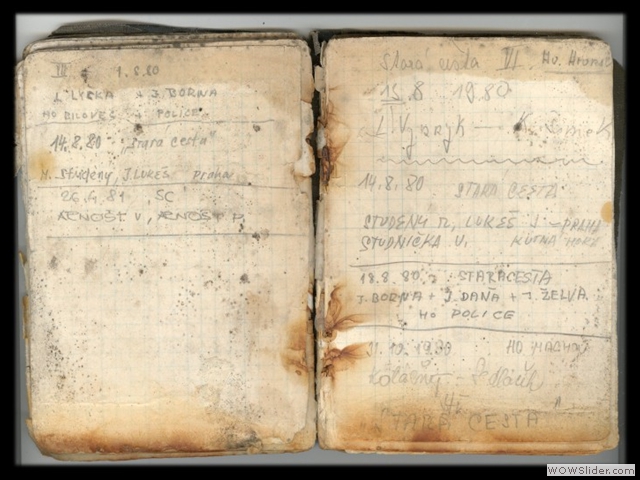 VII 1.8.80
L LYČKA + J. BORNA
HO BILOVEŠ + POLICE
14.8.80 „Stará cesta"
M. Studený, J. LUKEŠ Praha
26.4.81 SC
ARNOŠT V., ARNOŠT P.
Stará cesta VI. Ho. Hronov
15.8 1980
14.8.80 STARÁ CESTA
STUDENÝ M, LUKEŠ J – PRAHA
STUDNIČKA V. KUTNÁ HORA
18.8.80 STARÁ CESTA
J. BORNA + J. DAŇA + J. ŽELVA
HO POLICE
31.10.1980 HO
STARÁ CESTA
WOWSlider.com